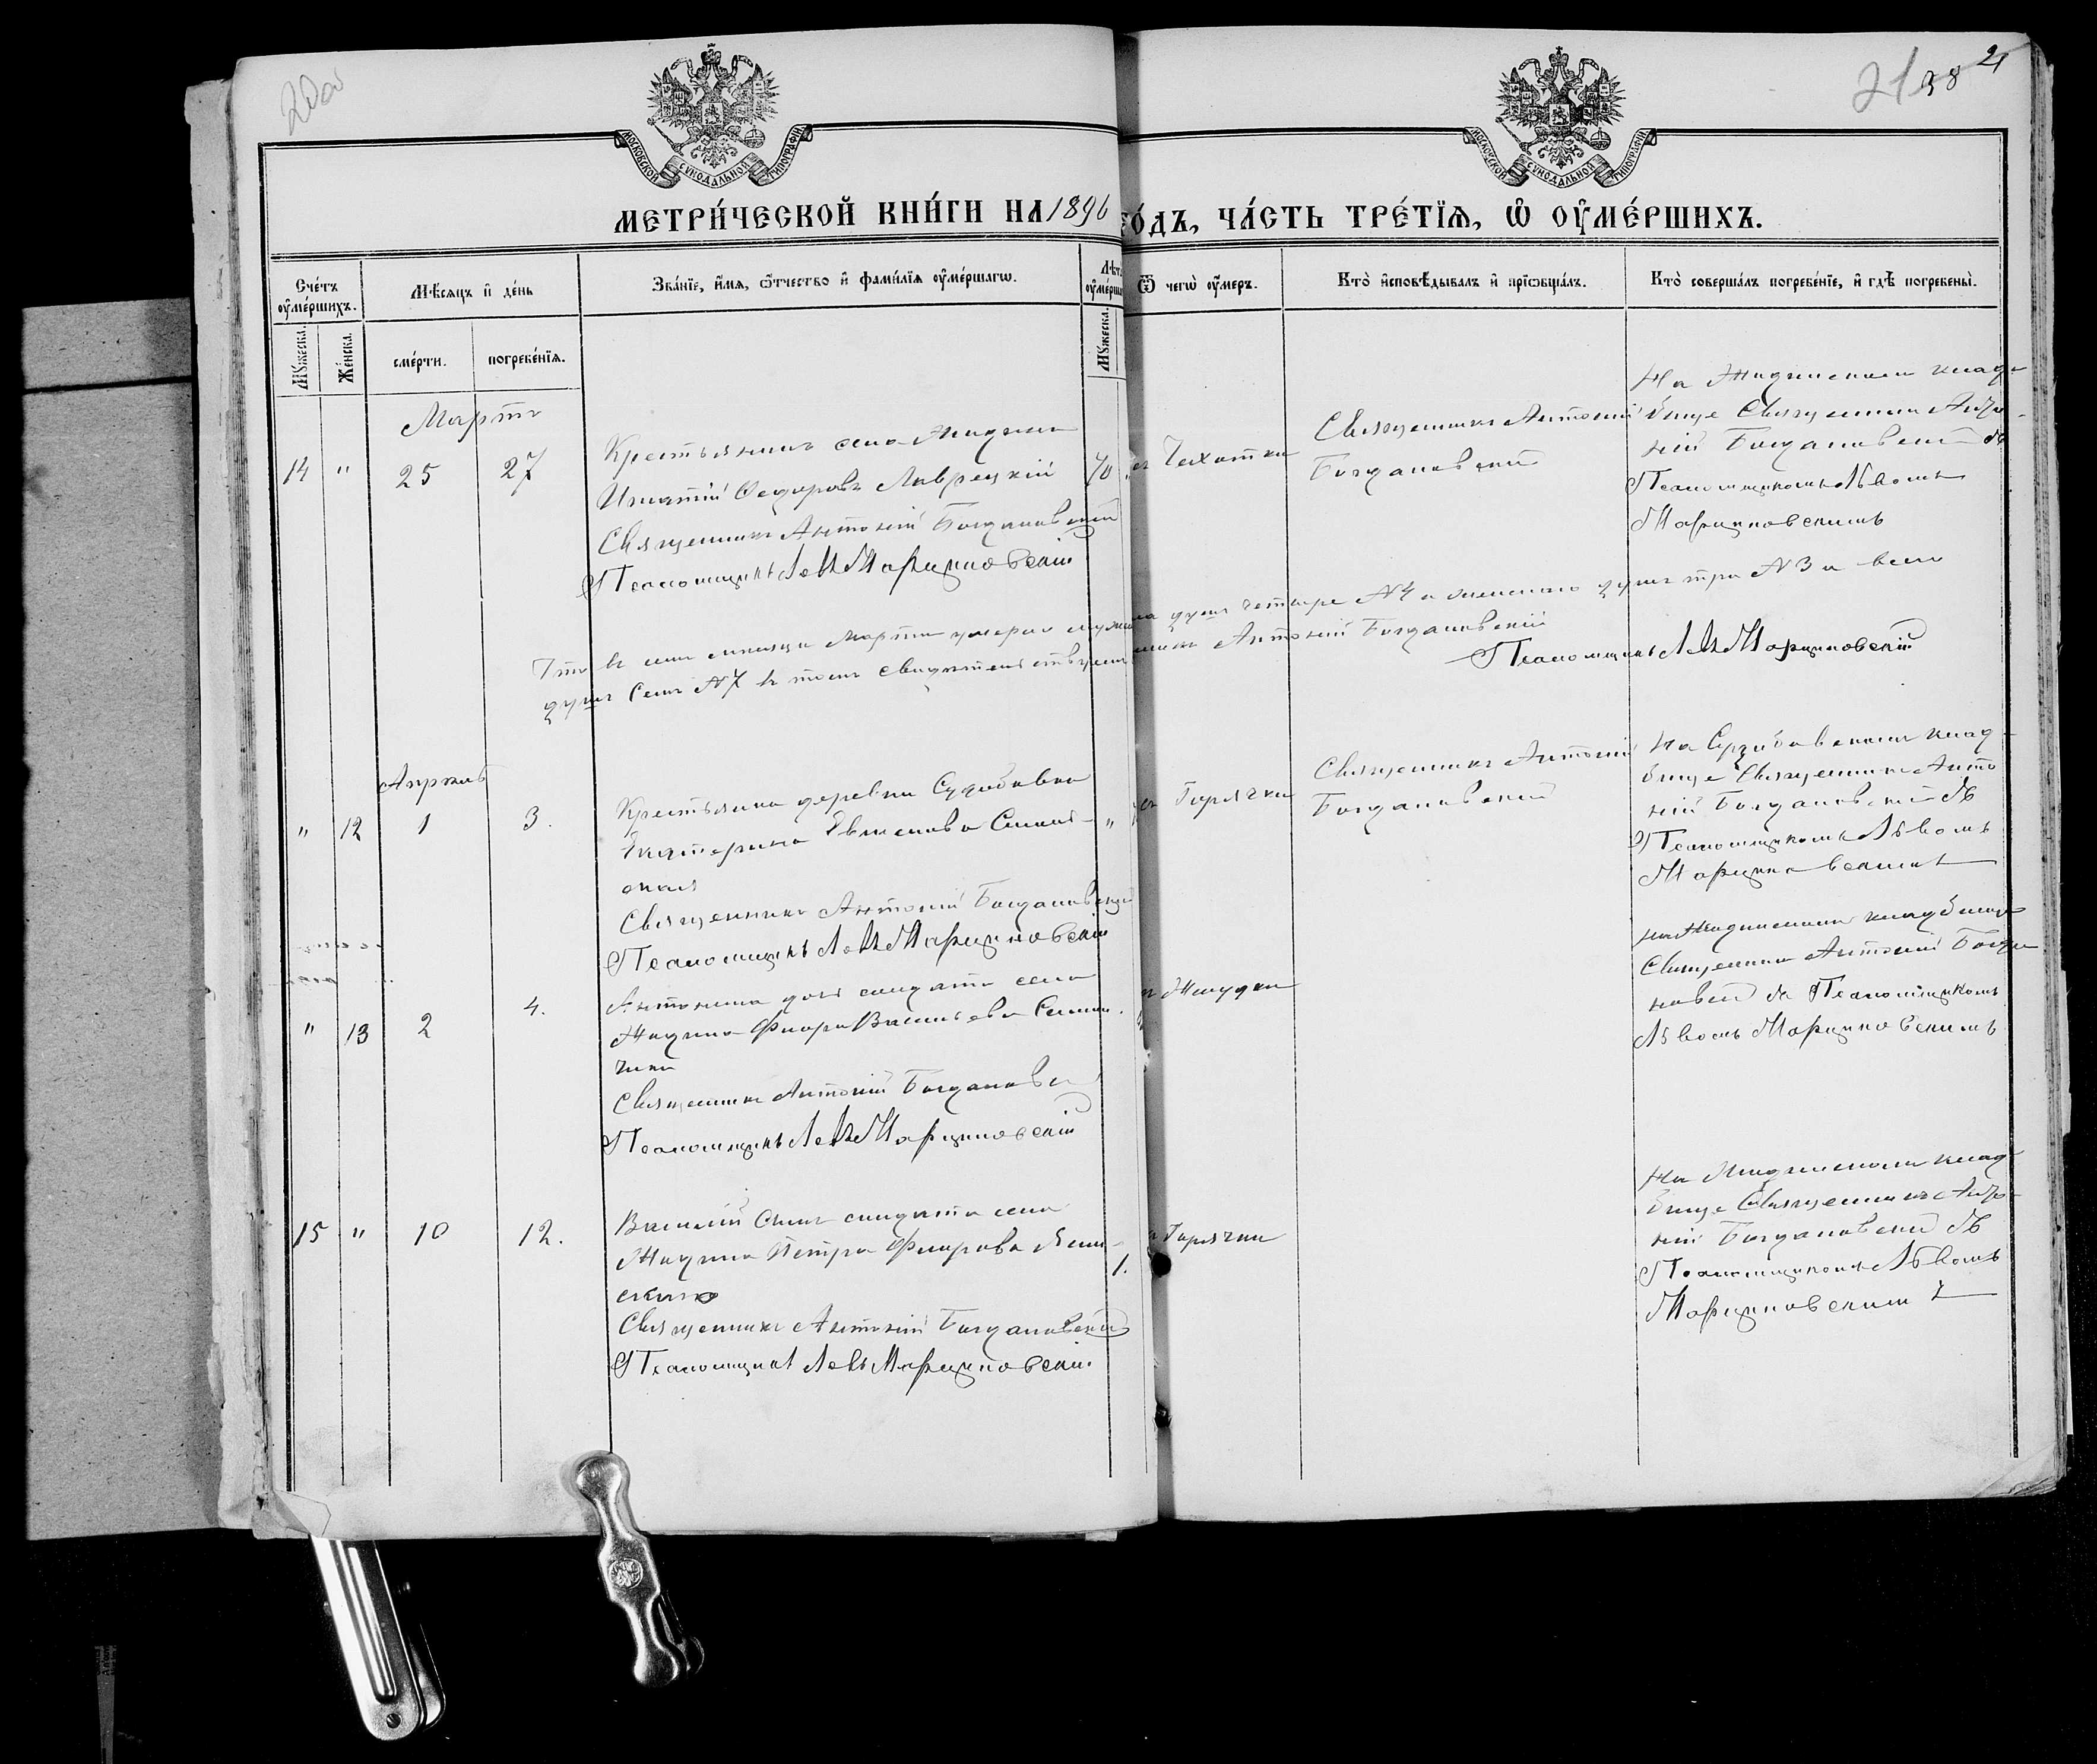 20об
21 38 21
МОСКОВСКОЙ СѴНОДАЛЬНОЙ ТИПОГРАФІИ
МОСКОВСКОЙ СѴНОДАЛЬНОЙ ТИПОГРАФІИ
МЕТРИ́ЧЕСКОЙ КНИ́ГИ НА 1896 ГО́ДЪ, ЧА́СТЬ ТРЕ́ТЇѦ, Ѡ҆ ОУ҆МЕ́РШИХЪ.
Сче́тъ оу҆ме́ршихъ.
Мꙋжеска.
Же́нска.
Мѣ́сѧцъ и҆ де́нь
сме́рти.
погребе́нїѧ.
Зва́нїе, и҆́мѧ, ѻ҆́тчество и҆ фами́лїѧ оу҆ме́ршагѡ.
Лѣт
оу҆ме́рша
Мꙋжеска.
Ѿ чегѡ̀ оу҆́меръ.
Кто̀ и҆сповѣ́дывалъ и҆ прїѡбща́лъ.
Кто̀ соверша́лъ погребе́нїе, и҆ гдѣ̀ погребены̀.
Мартъ
14 " 25 27
Крестьянинъ села Жидчина
Игнатій Ѳедоровъ Лаврецкій
Священникъ Антоній Богдановскій
Псаломщикъ Левъ Марциновскій
70
Чахотки
Священникъ Антоній
Богдановскій
На Жидчинскомъ клад-
бище Священникъ Анто-
ній Богдановскій съ
Псаломщикомъ Львомъ
Марциновскимъ
Что въ семъ мѣсяцѣ Мартѣ умерло мужска душъ четыре №4 а женскаго душъ три №3 а всего
душъ семь №7 въ томъ свидѣтельствуемъ Антоній Богдановскій
Псаломщикъ Левъ Марциновскій
Апрѣль
" 12 1 3.
Крестьянка деревни
Екатерина
Священникъ Антоній Богдановскій
Псаломщикъ Левъ Марциновскій
"
Горячки
Священникъ Антоній
Богдановскій
На клад-
бище Священникъ Анто
ній Богдановскій съ
Псаломщикомъ Львомъ
Марциновскимъ
" 13 2 4.
Антонина дочь солдата села
Жидчина Васильева
Священникъ Антоній Богдановск
Псаломщикъ Левъ Марциновскій
Желудка
на Жидчинскомъ кладбище
Священникъ Антоній Богда
новскій съ Псаломщикомъ
Львомъ Марциновскимъ
15 " 10 12.
Василій сынъ солдата села
Жидчина Петра
Священникъ Антоній Богдановскій
Псаломщикъ Левъ Марциновскій
1.
Горячки
На Жидчинскомъ клад-
бище Священникъ Анто-
ній Богдановскій съ
Псаломщикомъ Львомъ
Марциновскимъ